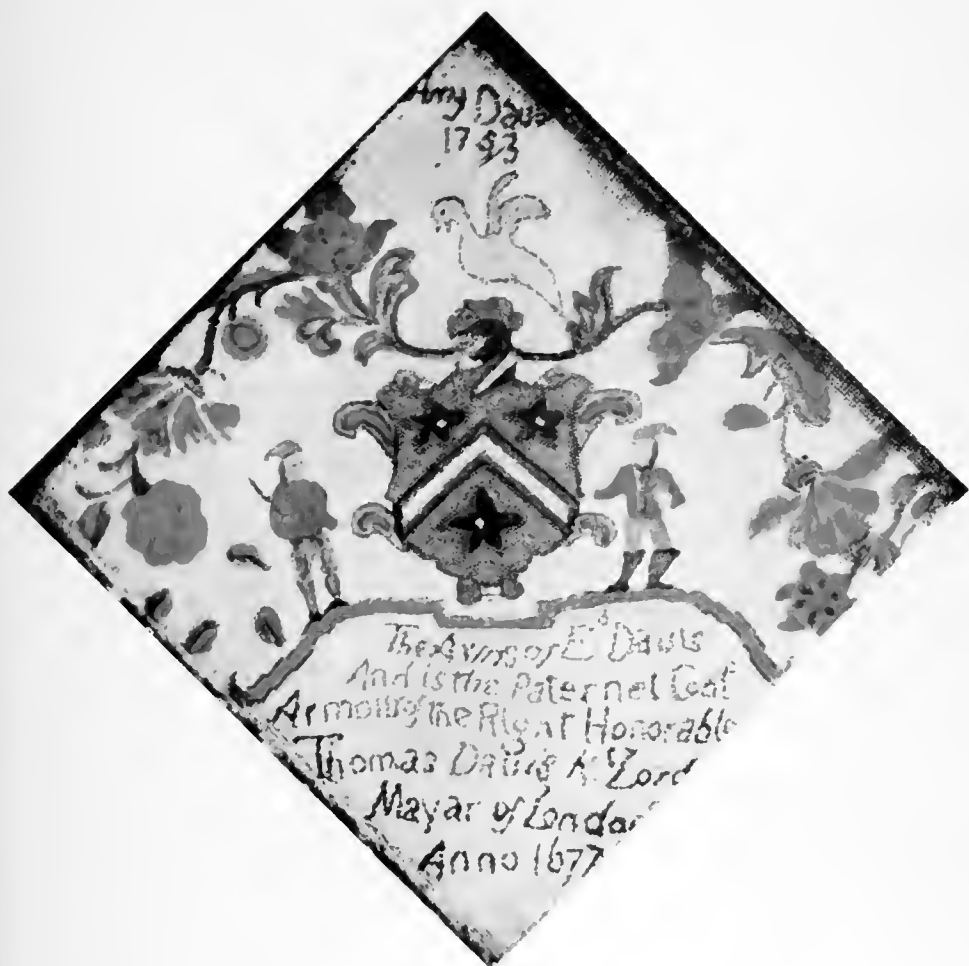 Amy Davis
1753
The Arms of Ed Davis
And is the Paternel Coat
Armour of the Right Honorable
Thomas Davis Kt Lord
Mayar of London
Anno 1677